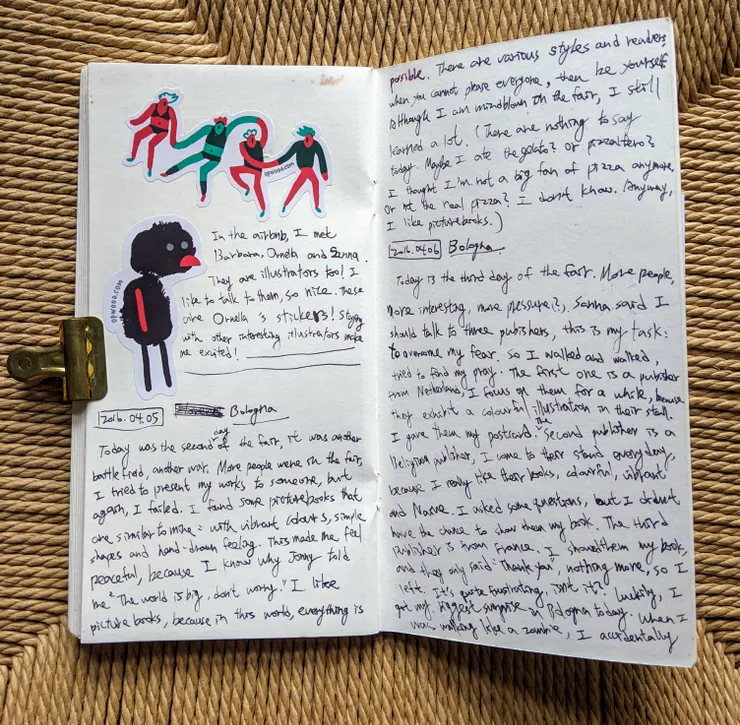 opwooo.com
opwooo.com
In the airbnb, I met
Barbara, Ornella and Sanna.
They are illustrators too! I
like to talk to them, so nice. These
are Ornella's stickers! Staying
with other interesting illustrators make
me excited!
2016.04.05 Bologna
Today was the second day of the fair, it was another
battlefield, another war. More people were in the fair,
I tried to present my works to someone, but
again, I failed. I found some picturebooks that
are similar to mine = with vibrant colours, simple
shapes and hand-drawn feeling. This made me feel
peaceful, because I know why Jonny told
me "The world is big, don't worry." I like
picture books, because in this world, everything is
possible. There are various styles and readers,
when you cannot please everyone, then be yourself
Although I am mindblown in the fair, I still
learned a lot. (There are nothing to say
today. Maybe I ate the gelato? or pizza
I thought I'm not a big fan of pizza anymore.
Or not the real pizza? I don't know. Anyway,
I like picturebooks.)
2016.04.06 Bologna
Today is the third day of the fair. More people,
more interesting, more pressure?). Sanna said I
should talk to three publishers, this is my task:
to overcome my fear. So I walked and walked,
tried to find my pray. The first one is a publisher
from Netherland, I focus on them for a while, because
they exhibit a colourful illustration in their stall.
I gave them my postcard. The Second publisher is a
publisher, I came to their stand everyday,
because I really like their books, colourful, vibrant
and Naive. I asked some questions, but I didn't
have the chance to show them my book. The third
publisher is from France. I showed them my book,
and they only said "Thank you", nothing more, so I
left. It's quite frustrating, isn't it? Luckily, I
got my biggest surprise in Bologna today. When I
was walking like a zombie, I accidentally